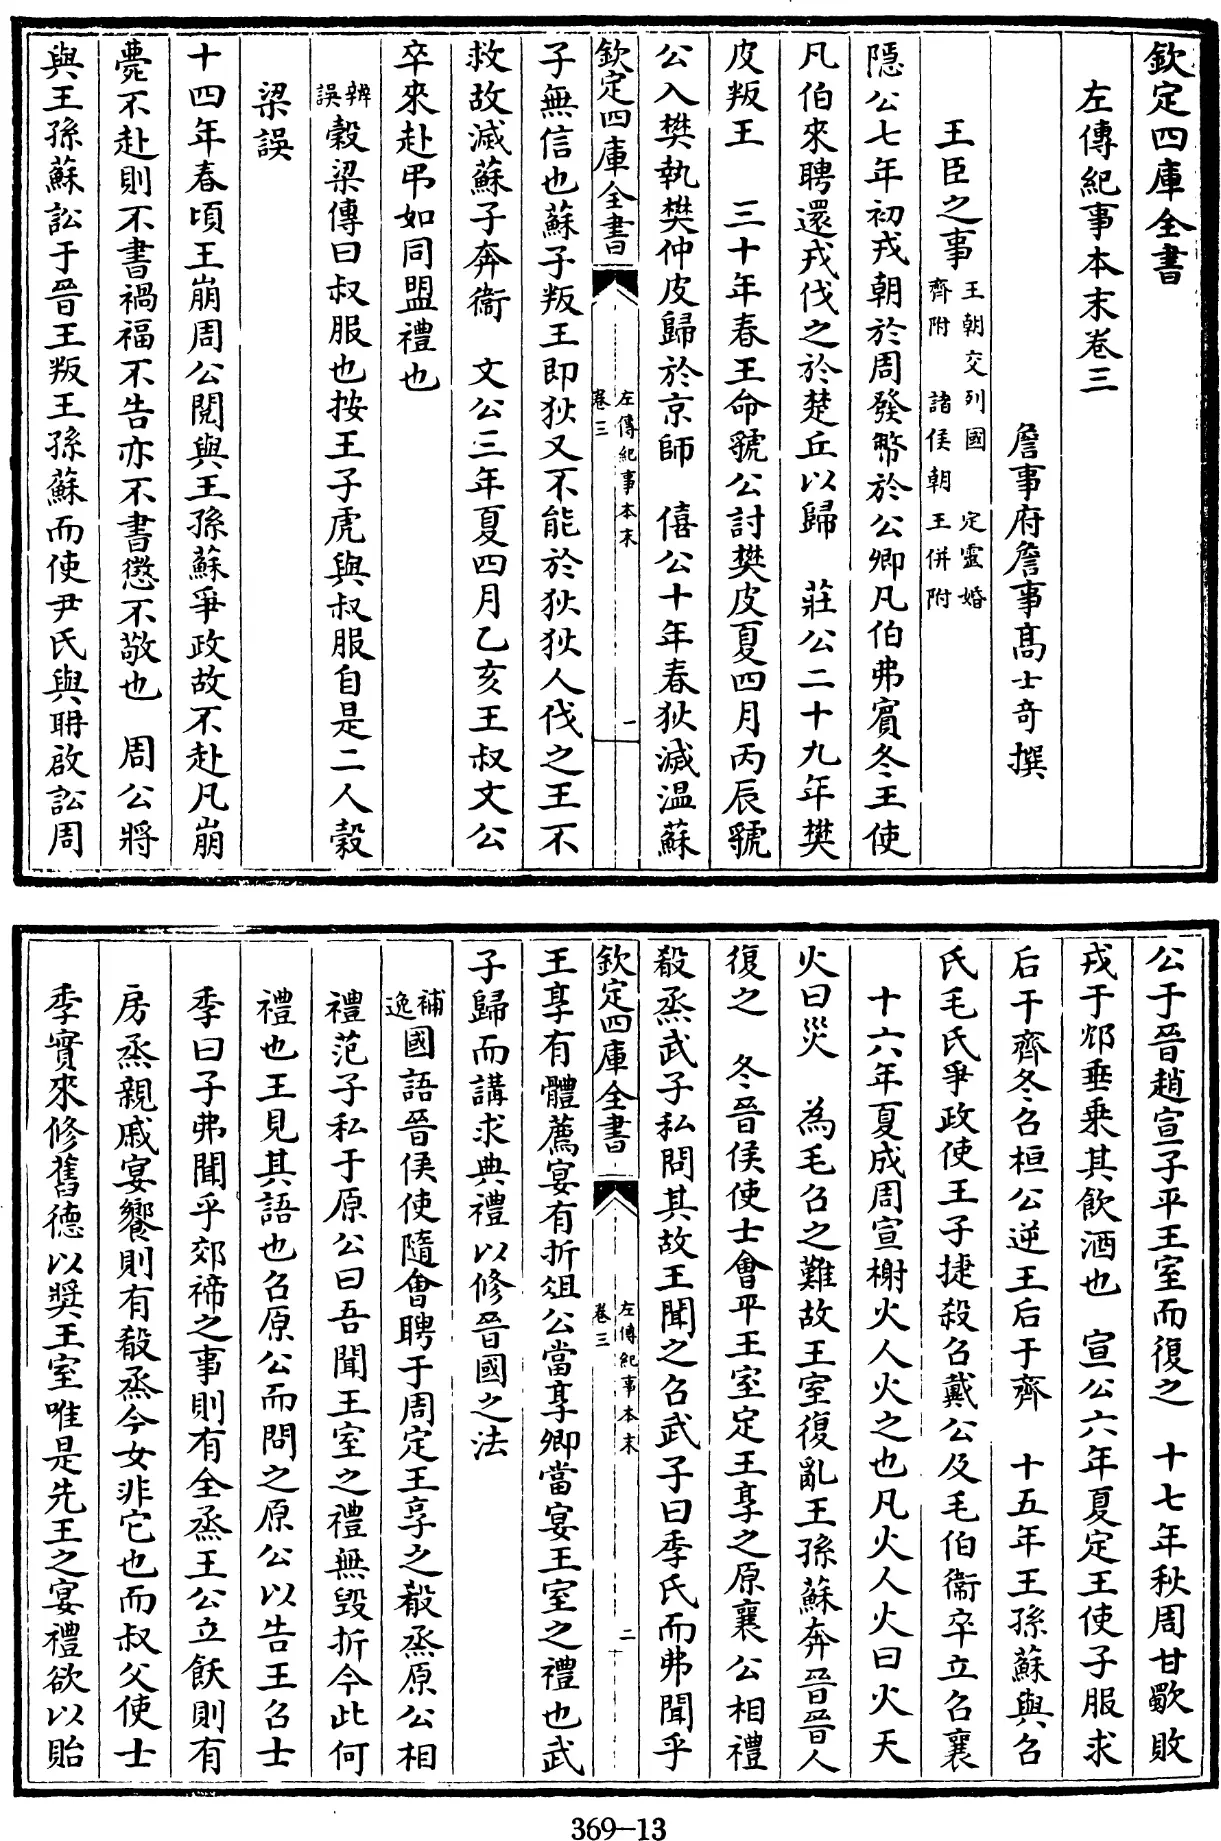 欽定四庫全書
左傳紀事本末卷三
詹事府詹事高士奇撰
王臣之事 王朝交列國 定靈婚
齊附 諸侯朝王併附
隱公七年初戎朝於周發幣於公卿凡伯弗賔冬王使
凡伯來聘還戎伐之於楚丘以歸 莊公二十九年樊
皮叛王 三十年春王命虢公討樊皮夏四月丙辰虢
公入樊執樊仲皮歸於京師 僖公十年春狄滅温蘇
欽定四庫全書
左傳紀事本末
卷三
一
子無信也蘇子叛王即狄又不能於狄狄人伐之王不
救故滅蘇子奔衞 文公三年夏四月乙亥王叔文公
卒來赴弔如同盟禮也
辨誤 穀梁傳曰叔服也按王子虎與叔服自是二人穀
梁誤
十四年春頃王崩周公閱與王孫蘇爭政故不赴凡崩
薨不赴則不書禍福不告亦不書懲不敬也 周公將
與王孫蘇訟于晉王叛王孫蘇而使尹氏與聃啟訟周
公于晉趙宣子平王室而復之 十七年秋周甘歜敗
戎于邥垂乘其飲酒也 宣公六年夏定王使子服求
后于齊冬召桓公逆王后于齊 十五年王孫蘇與召
氏毛氏爭政使王子捷殺召戴公及毛伯衞卒立召襄
十六年夏成周宣榭火人火之也凡火人火曰火天
火曰災 為毛召之難故王室復亂王孫蘇奔晉晉人
復之 冬晉侯使士會平王室定王享之原襄公相禮
殽烝武子私問其故王聞之召武子曰季氏而弗聞乎
欽定四庫全書
左傳紀事本末
卷三
二
王享有體薦宴有折俎公當享卿當宴王室之禮也武
子歸而講求典禮以修晉國之法
補逸 國語晉侯使隨會聘于周定王享之殽烝原公相
禮范子私于原公曰吾聞王室之禮無毀折今此何
禮也王見其語也召原公而問之原公以告王召士
季曰子弗聞乎郊禘之事則有全烝王公立飫則有
房烝親戚宴饗則有殽烝今女非它也而叔父使士
季實來修舊德以奬王室唯是先王之宴禮欲以貽
369-13